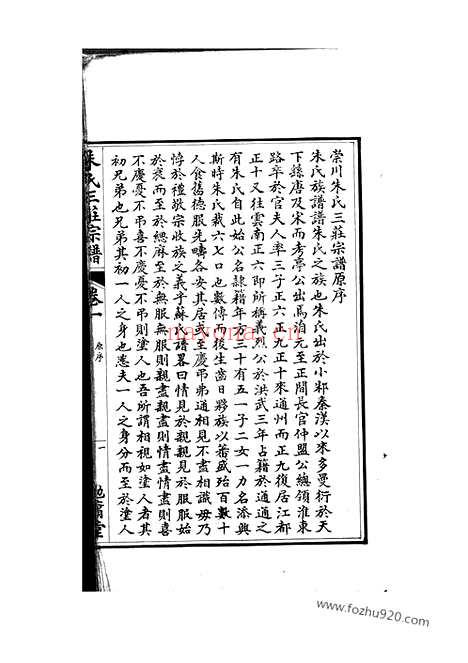 崇川朱氏三莊宗譜原序
朱氏族譜譜朱氏之族也朱氏出於小邾秦漢以來多蔓衍於天
下繇唐及宋而考亭公出焉洎元至正間長官仲盟公總領淮東
路卒於官夫人率三子正六正九正十來通州而正九復居江都
正十又往雲南正六即所稱義烈公於洪武三年占籍於通通之
有朱氏自此始公名隸籍年方三十有五一子二女一力名添興
斯時朱氏裁六七口也數傳而後生齒日夥族以蕃盛殆百數十
人食舊德服先疇各安其居或至慶弔弗通相見不盡相識毋乃
悖於禮敬宗收族之義乎蘇氏譜畧曰情見於親親見於服服始
於衰而至於緦麻至於無服無服則親盡親盡則情盡情盡則喜
不慶憂不弔喜不慶憂不弔則塗人也吾所謂相視如塗人者其
初兄弟也兄弟其初一人之身也悉夫一人之身分而至於塗人
朱氏三莊宗譜
卷一
原序
一
navona.cn
www.fozhu920.com